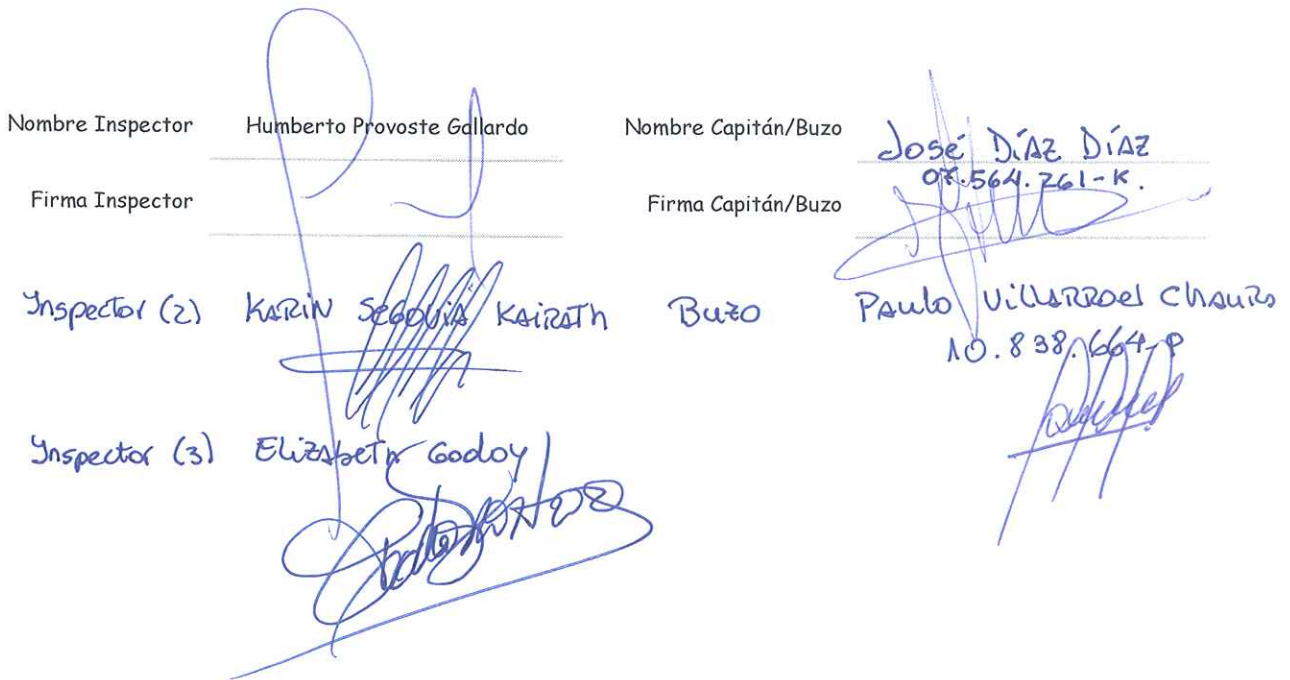 Nombre Inspector Humberto Provoste Gallardo Nombre Capitán/Buzo José DíAZ DíAZ
07.564.261-K.
Firma Inspector Firma Capitán/Buzo
Inspector (2) KARIN SEGOVIA KAIRATH Buzo PAulo VillARROEl ChAuRo
10.838.664-P
Inspector (3) ElizAbeTh Godoy